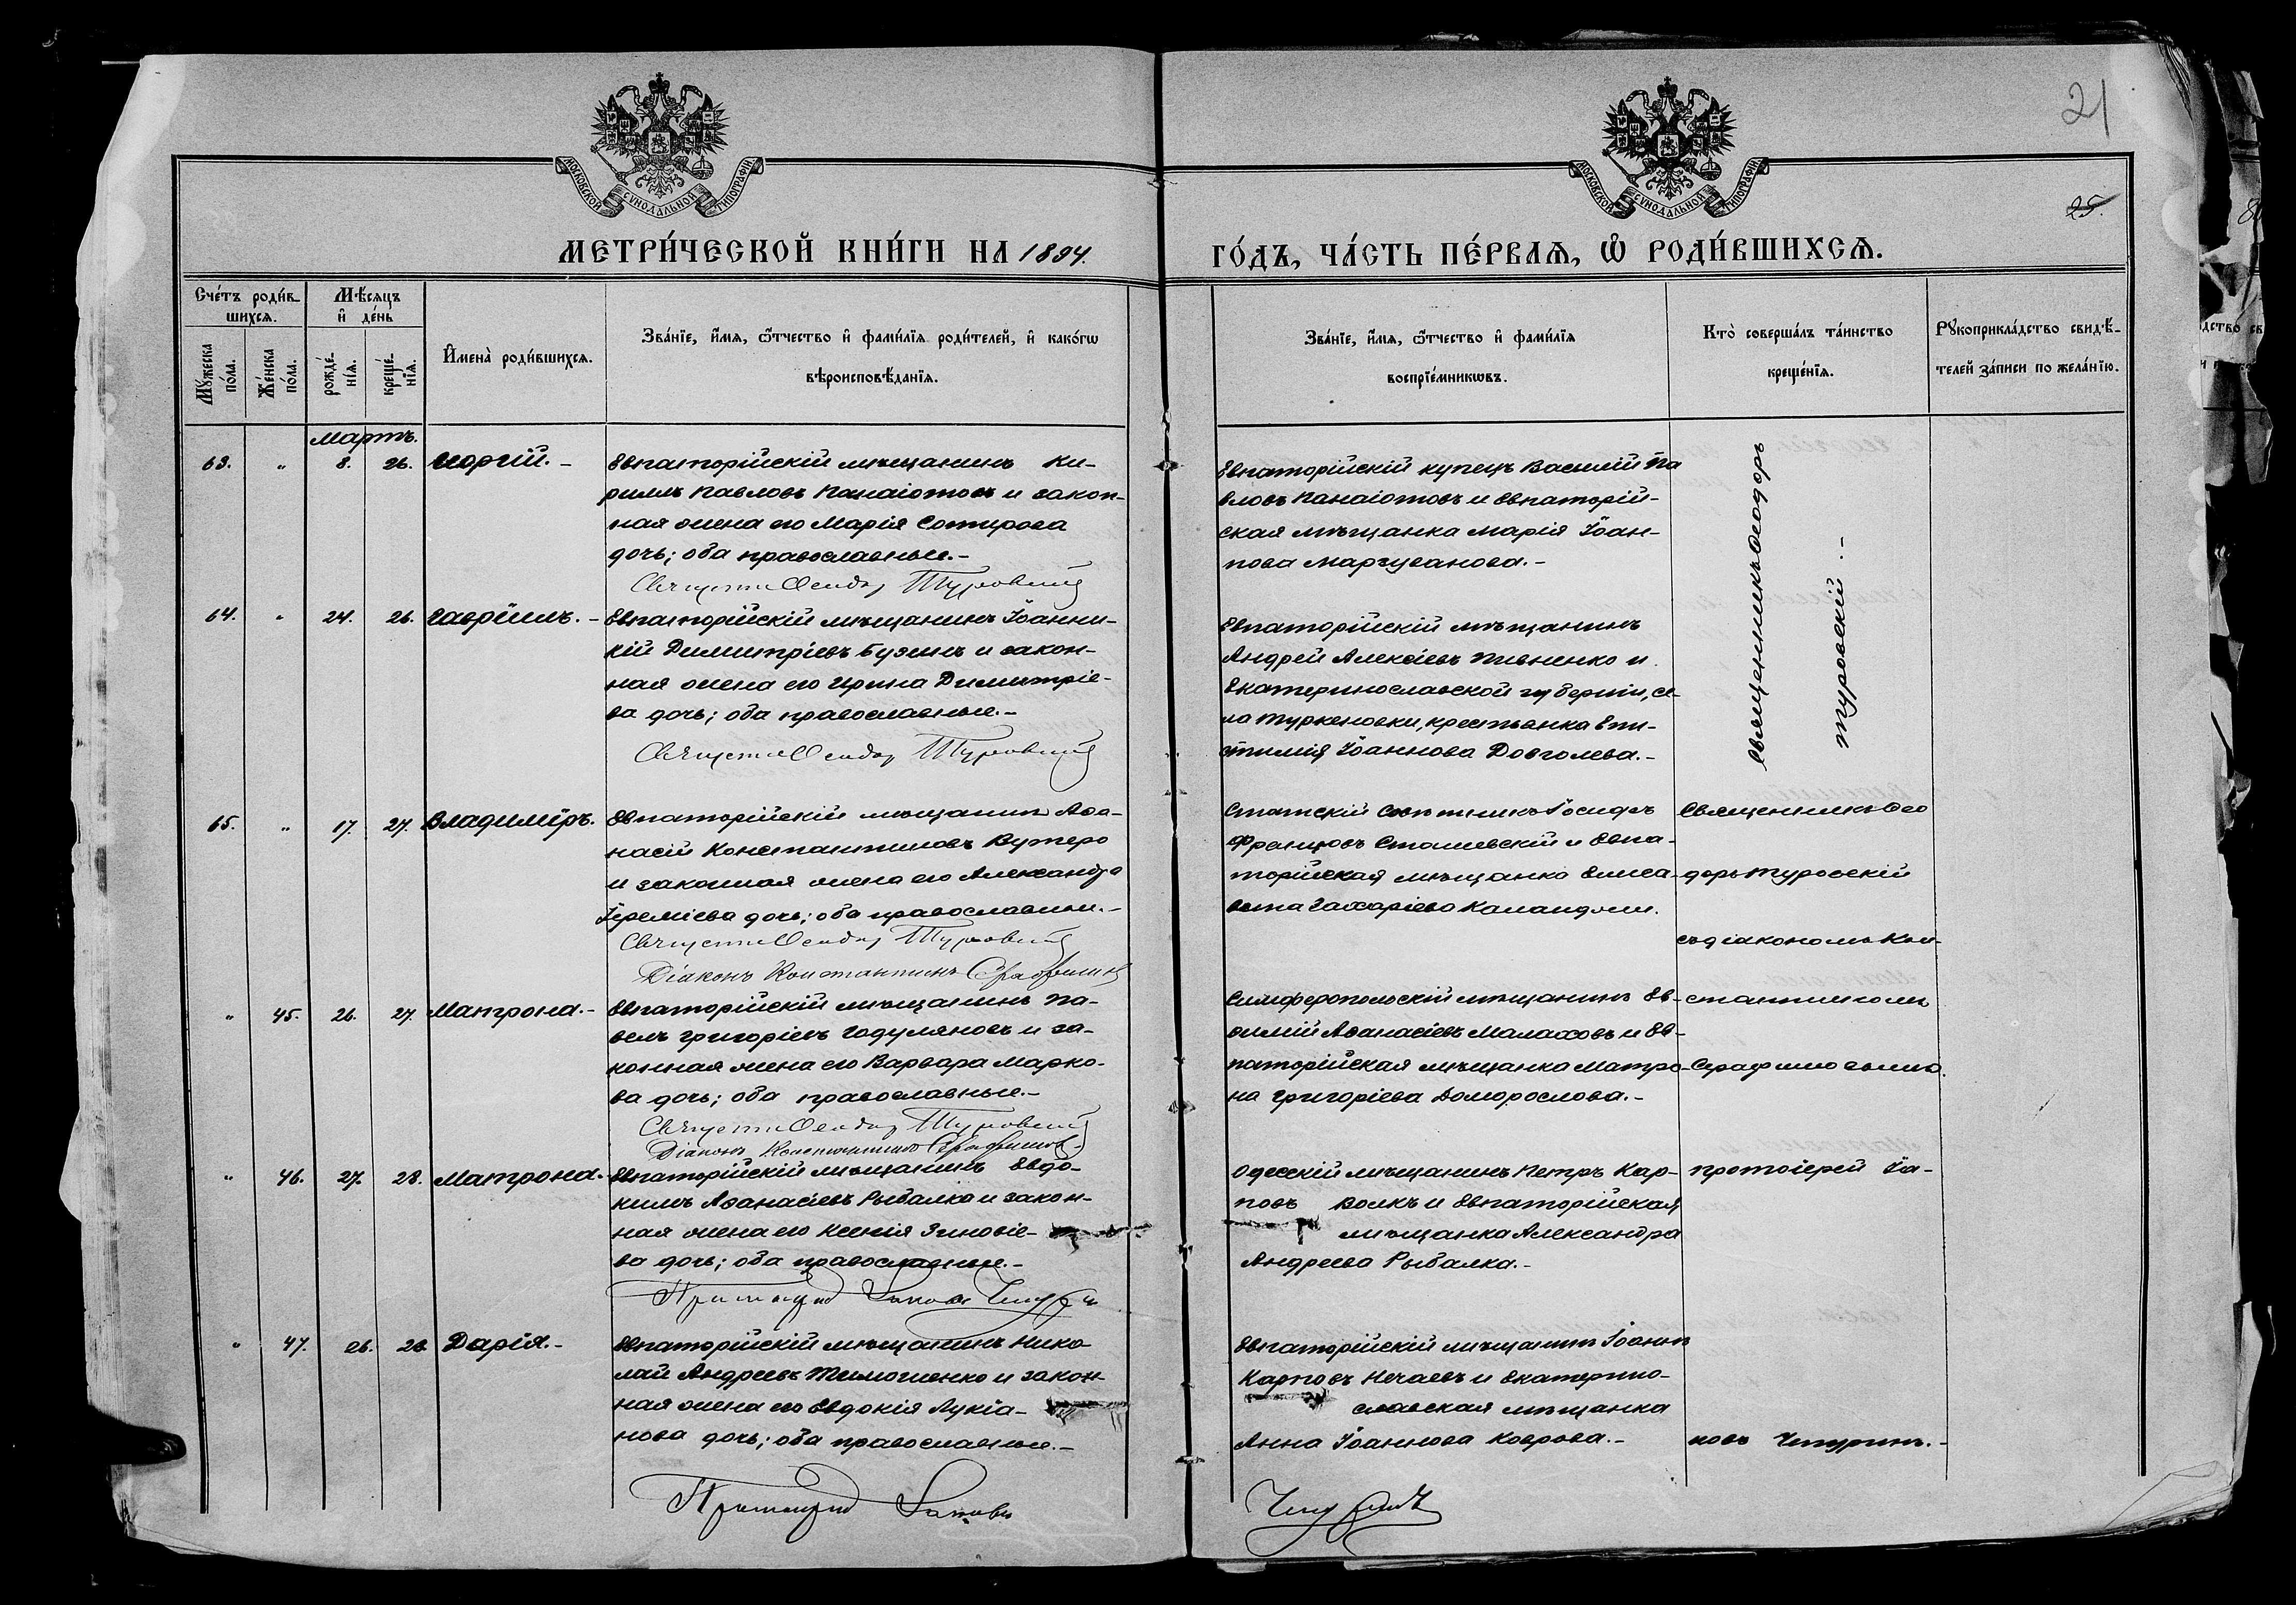 21
25.
МОСКОВСКОЙ СѴНОДАЛЬНОЙ ТИПОГРАФІИ
МОСКОВСКОЙ СѴНОДАЛЬНОЙ ТИПОГРАФІИ
МЕТРИ́ЧЕСКОЙ КНИ́ГИ НА 1894. ГО́ДЪ, ЧА́СТЬ ПЕ́РВАѦ, Ѡ РОДИ́ВШИХСѦ.
Сче́тъ роди́в-
шихсѧ.
Мѣ́сѧцъ
и҆ де́нь
Мꙋ́жеска по́ла.
Же́нска по́ла.
рожде́-
нїѧ.
креще́-
нїѧ.
И҆мена̀ роди́вшихсѧ.
Зва́нїе, и҆́мѧ, ѻ҆́тчество и҆ фами́лїѧ роди́телей, и҆ како́гѡ
вѣроисповѣ́данїѧ.
Зва́нїе, и҆́мѧ, ѻ҆́тчество и҆ фами́лїѧ
воспрїе́мникѡвъ.
Кто̀ соверша́лъ та́инство
креще́нїѧ.
Рꙋкоприкла́дство свидѣ́-
телей за́писи по жела́нїю.
Мартъ.
63. " 8. 26. Георгій.-
Евпаторійскій мѣщанинъ Ки-
риллъ Павловъ Панаіотовъ и закон-
ная жена его Марія Сотирова
дочь; оба православные.-
Священникъ Ѳеодоръ Туровскій
Евпаторійскій купецъ Василій Па
вловъ Панаіотовъ и Евпаторій-
ская мѣщанка Марія Іоан-
нова Маргуванова.-
Священникъ Ѳеодоръ
Туровскій.-
64. " 24. 26. Гавріилъ.-
Евпаторійскій мѣщанинъ Іоанни-
кій Димитріевъ Бузинъ и закон-
ная жена его Ирина Димитріе-
ва дочь; оба православные.-
Священникъ Ѳеодоръ Туровскій
Евпаторійскій мѣщанинъ
Андрей Алексѣевъ Пивненко и
Екатеринославской губерніи, се-
ла Туркеновки, крестьянка Епи-
стимія Іоаннова Довголева.-
65. " 17. 27. Владиміръ.
Евпаторійскій мѣщанинъ Аѳа-
насій Константиновъ Вутеро
и законная жена его Александра
Іереміева дочь; оба православные.-
Священникъ Ѳеодоръ Туровскій
Діаконъ Константинъ Серафимовъ
Статскій Совѣтникъ Іосифъ
Францовъ Сташевскій и Евпа-
торійская мѣщанка Елиса-
вета Захаріева
Священникъ Ѳео
доръ Туровскій
съ діакономъ Кон-
стантиномъ
Серафимовымъ.
" 45. 26. 27. Матрона.-
Евпаторійскій мѣщанинъ Па-
велъ Григоріевъ Годуляновъ и за-
конная жена его Варвара Марко-
ва дочь; оба православные.-
Священникъ Ѳеодоръ Туровскій
Діаконъ Константинъ Серафимовъ
Симферопольскій мѣщанинъ Ев-
ѳимій Аѳанасіевъ Малаховъ и Ев-
паторійская мѣщанка Матро-
на Григоріева Доморослова.-
" 46. 27. 28. Матрона.
Евпаторійскій мѣщанинъ Евдо-
кимъ Аѳанасіевъ Рыбалка и закон-
ная жена его Ксенія Зиновіе-
ва дочь; оба православные.-
Протоіерей Іаковъ Чепуринъ
Одесскій мѣщанинъ Петръ Кар-
повъ Волкъ и Евпаторійская
мѣщанка Александра
Андреева Рыбалка.-
Протоіерей Іа-
ковъ Чепуринъ.-
" 47. 26. 28 Дарія.-
Евпаторійскій мѣщанинъ Нико
лай Андреевъ Тимошенко и закон
ная жена его Евдокія Лукіа-
нова дочь; оба православные.-
Протоіерей Іаковъ
Евпаторійскій мѣщанинъ Іоаннъ
Карповъ Нечаевъ и Екатерино-
славская мѣщанка
Анна Іоаннова Коврова.-
Чепуринъ